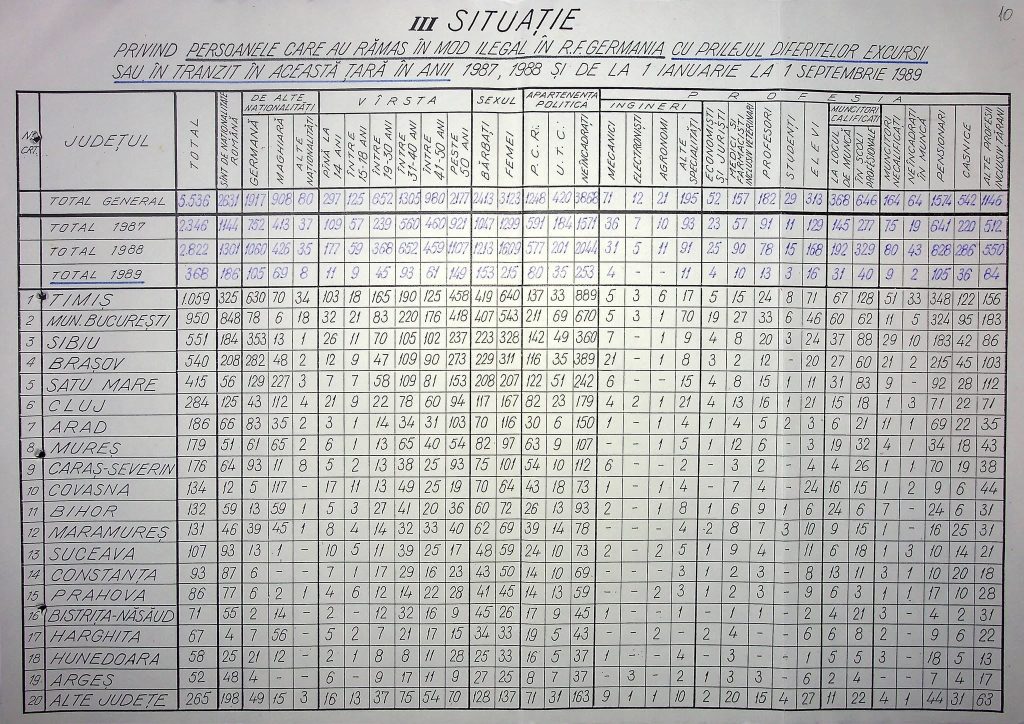 10
III SITUAȚIE
PRIVIND PERSOANELE CARE AU RĂMAS ÎN MOD ILEGAL ÎN R.F.GERMANIA CU PRILEJUL DIFERITELOR EXCURSII
SAU ÎN TRANZIT ÎN ACEASTĂ ȚARĂ ÎN ANII 1987, 1988 ȘI DE LA 1 IANUARIE LA 1 SEPTEMBRIE 1989
NR. CRT. JUDEȚUL TOTAL SÎNT DE NAȚIONALITATE ROMÂNĂ DE ALTE NAȚIONALITĂȚI VÎRSTA SEXUL APARTENENȚA POLITICĂ PROFESIA
GERMANĂ MAGHIARĂ ALTE NAȚIONALITĂȚI PÎNĂ LA 14 ANI ÎNTRE 15-18 ANI ÎNTRE 19-30 ANI ÎNTRE 31-40 ANI ÎNTRE 41-50 ANI PESTE 50 ANI BĂRBAȚI FEMEI P.C.R. U.T.C. NEÎNCADRAȚI INGINERI MECANICI ELECTRONIȘTI AGRONOMI ALTE SPECIALITĂȚI ECONOMIȘTI ȘI JURIȘTI MEDICI ȘI FARMACIȘTI INCLUSIV VETERINARI PROFESORI STUDENȚI ELEVI MUNCITORI CALIFICAȚI LA LOCUL DE MUNCĂ ÎN ȘCOLI PROFESIONALE MUNCITORI NECALIFICAȚI NEÎNCADRAȚI ÎN MUNCĂ PENSIONARI CASNICE ALTE PROFESII INCLUSIV ȚĂRANI
TOTAL GENERAL 5.536 2631 1917 908 80 297 125 652 1305 980 2177 2413 3123 1248 420 3868 71 12 21 195 52 157 182 29 313 368 646 164 64 1574 542 1146
TOTAL 1987 2.346 1144 752 413 37 109 57 239 560 460 921 1047 1299 591 184 1571 36 7 10 93 23 57 91 11 129 145 277 75 19 641 220 512
TOTAL 1988 2.822 1301 1060 426 35 177 59 368 652 459 1107 1213 1609 577 201 2044 31 5 11 91 25 90 78 15 168 192 329 80 43 828 286 550
TOTAL 1989 368 186 105 69 8 11 9 45 93 61 149 153 215 80 35 253 4 - - 11 4 10 13 3 16 31 40 9 2 105 36 84
1 TIMIȘ 1.059 325 630 70 34 103 18 165 190 125 458 419 640 137 33 889 5 3 6 17 5 15 24 8 71 67 128 51 33 348 122 156
2 MUN. BUCUREȘTI 950 848 78 6 18 32 21 83 220 176 418 407 543 211 69 670 5 3 1 70 19 27 33 6 46 60 62 11 5 324 95 183
3 SIBIU 551 184 353 13 1 26 11 70 105 102 237 223 328 142 49 360 7 - 1 9 4 8 20 3 24 37 88 29 10 183 42 86
4 BRAȘOV 540 208 282 48 2 12 9 47 109 90 273 229 311 116 35 389 21 - 1 8 3 2 12 - 20 27 60 21 2 215 45 103
5 SATU MARE 415 56 129 227 3 7 7 58 109 81 153 208 207 122 51 242 6 - - 15 4 8 15 1 11 31 83 9 - 92 28 112
6 CLUJ 284 125 43 112 4 21 9 22 78 60 94 117 167 82 23 179 4 2 1 21 4 13 16 1 21 15 18 1 3 71 22 71
7 ARAD 186 66 83 35 2 3 1 14 34 31 103 70 116 30 6 150 1 - 1 4 1 4 5 2 3 6 21 11 1 69 22 35
8 MUREȘ 179 51 61 65 2 6 1 13 65 40 54 82 97 63 9 107 - - 1 5 1 12 6 - 3 19 32 4 1 34 18 43
9 CARAȘ-SEVERIN 176 64 93 11 8 5 2 13 38 25 93 75 101 54 10 112 6 - - 2 - 3 2 - 4 4 26 1 1 70 19 38
10 COVASNA 134 12 5 117 - 17 11 13 49 25 19 70 64 43 18 73 1 - 1 4 - 7 4 - 24 16 15 1 2 9 6 44
11 BIHOR 132 59 13 59 1 5 3 27 41 20 36 60 72 26 13 93 2 - 1 8 1 6 9 1 6 24 6 7 - 24 6 31
12 MARAMUREȘ 131 46 39 45 1 8 4 14 32 33 40 62 69 39 14 78 - - - 4 2 8 7 3 10 9 15 1 - 16 25 31
13 SUCEAVA 107 93 13 1 - 10 5 11 39 25 17 48 59 24 10 73 2 - 2 5 1 9 4 - 11 6 18 1 3 10 14 21
14 CONSTANȚA 93 87 6 - - 7 1 17 29 16 23 43 50 14 10 69 - - - 3 1 2 3 - 8 13 11 3 1 10 20 18
15 PRAHOVA 86 77 6 2 1 4 6 12 14 22 28 41 45 14 13 59 - - 2 3 1 2 3 - 9 6 3 1 1 17 10 28
16 BISTRIȚA-NĂSĂUD 71 55 2 14 - 2 - 12 32 16 9 45 26 17 9 45 1 - - 1 - - 1 - 2 4 21 3 - 4 2 31
17 HARGHITA 67 4 7 56 - 5 2 7 21 17 15 34 33 19 5 43 - - 2 - 2 4 - - 6 6 8 2 - 9 6 22
18 HUNEDOARA 58 25 21 12 - 2 1 8 8 11 28 25 33 16 5 37 1 - - 4 - 3 - - 1 5 5 3 - 18 5 13
19 ARGEȘ 52 48 4 - - 6 - 9 17 11 9 27 25 8 7 37 - 3 - 2 1 3 3 - 6 2 4 - - 7 4 17
20 ALTE JUDEȚE 265 198 49 15 3 16 13 37 75 54 70 128 137 71 31 163 9 1 1 10 2 20 15 4 27 11 22 4 1 44 31 63